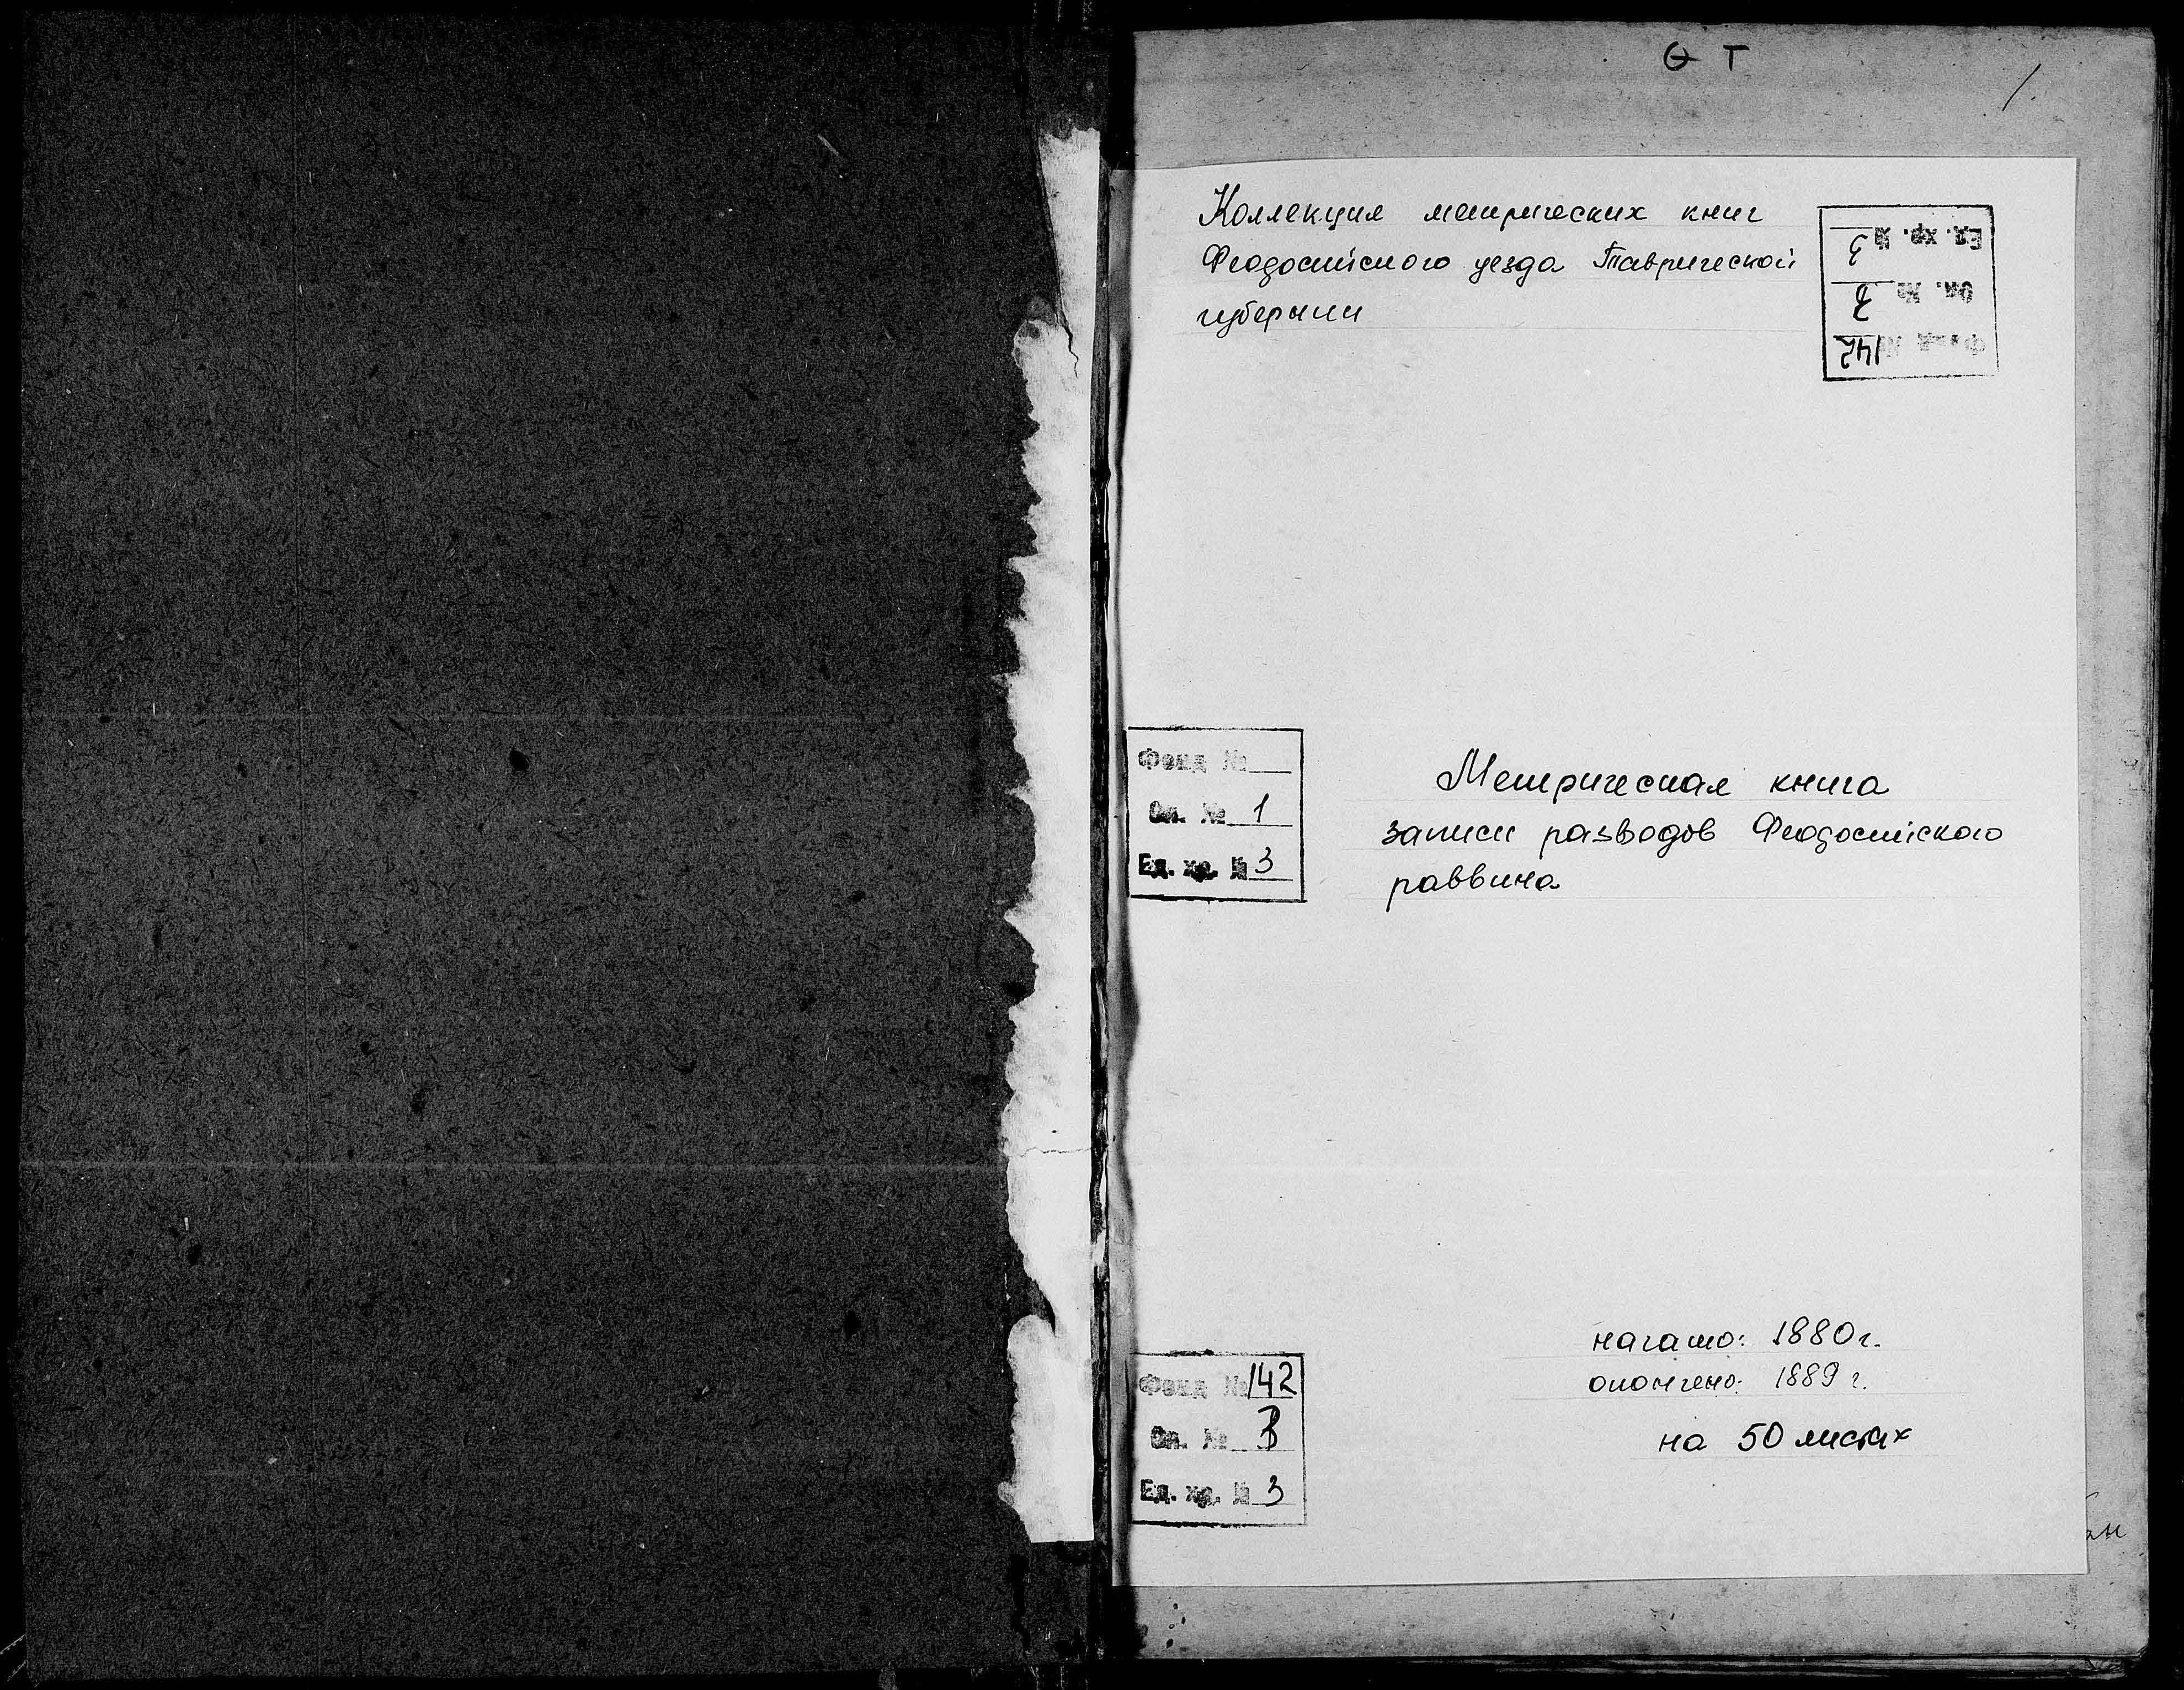 Ѳ Т
1.
Коллекция метрических книг
Феодосийского уезда Таврической
губернии
Ед. хр. № 3
Оп. № 3
Фонд № 142
Фонд №
Оп. № 1
Ед. хр. № 3
Метрическая книга
записи разводов Феодосийского
раввина
начато: 1880 г.
окончено: 1889 г.
на 50 листах
Фонд № 142
Оп. № 3
Ед. хр. № 3